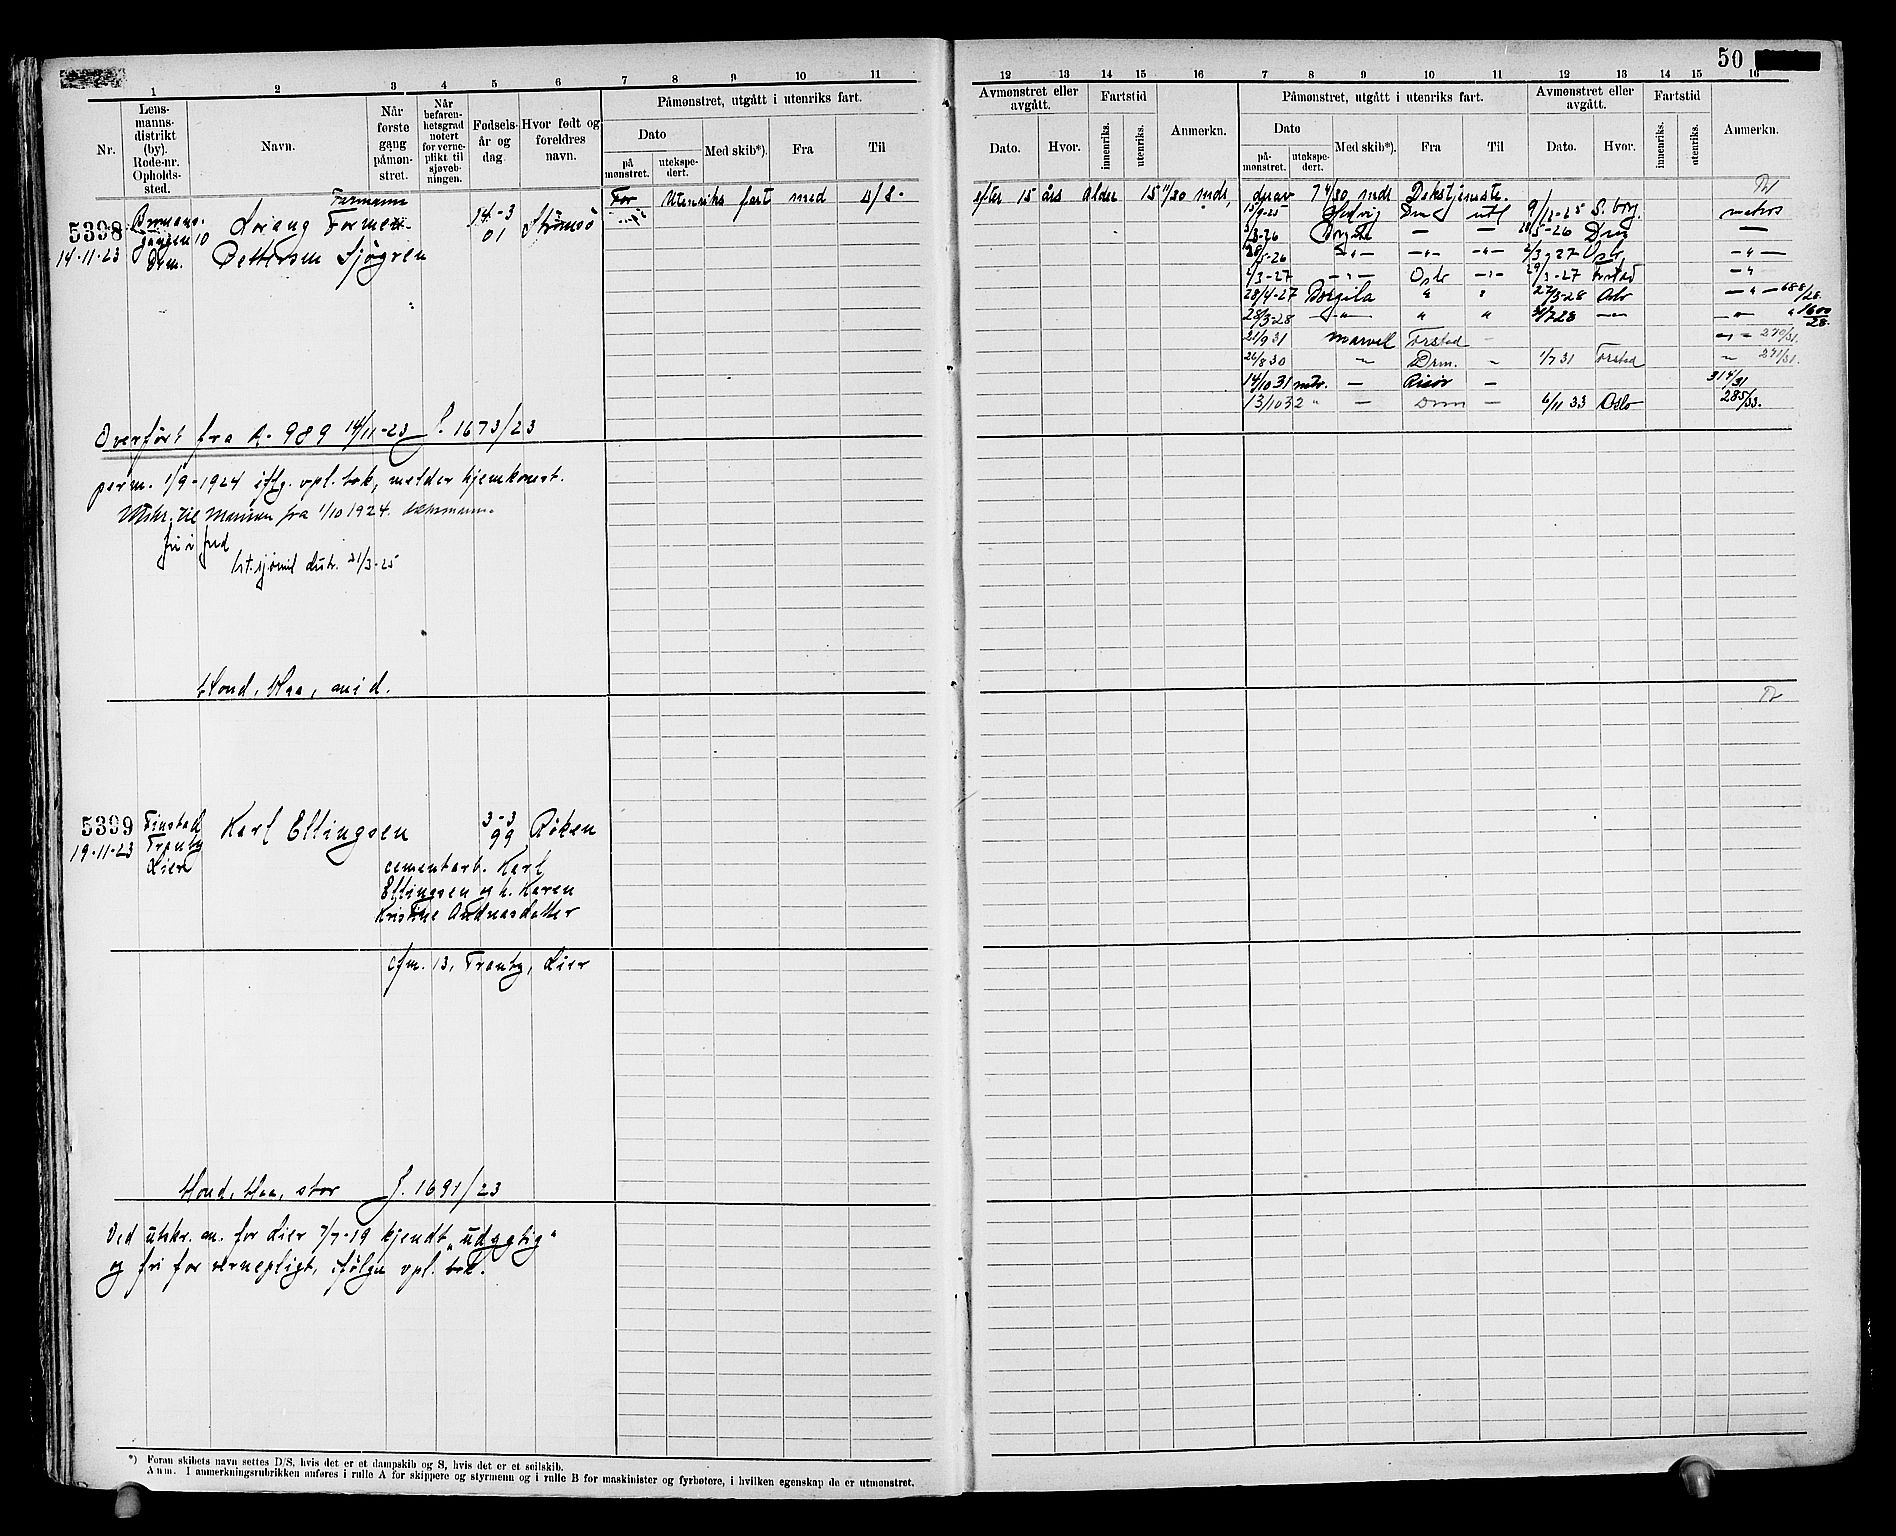 50
1 2 3 4 5 6 7 8 9 10 11
12 13 14 15 16 7 8 9 10 11 12 13 14 15 16
Nr.
Lens-
manns-
distrikt
(by).
Rode-nr.
Opholds-
sted.
Navn.
Når
første
gang
påmøn-
stret.
Når
befaren-
hetsgrad
notert
for verne-
plikt til
sjøveb-
ningen.
Fødsels-
år og
dag.
Hvor født og
foreldres
navn.
Påmønstret, utgått i utenriks fart.
Dato
på
mønstret.
utekspe-
dert.
Med skib*).
Fra
Til
Avmønstret eller
avgått.
Dato.
Hvor.
Fartstid
innenriks.
utenriks.
Anmerkn.
Påmønstret, utgått i utenriks fart.
Dato
på-
mønstret.
utekspe-
dert.
Med skib*).
Fra
Til
Avmønstret eller
avgått.
Dato.
Hvor.
Fartstid
innenriks.
utenriks.
Anmerkn.
Farmann
5398
14-11-23
10
Drm.
Lorang
Pettersen Sjøgren
14-3
01
Strømsø
For utenriks fart med D/S.
efter 15 års alder 15 11/30 mdr, derav 7 4/30 mdr Dekstjeneste.
15/9-25 Drm utl 9/12-25 S. borg. matros
3/3-26 — — 5-26 Drm —
5-26 —"— —"— —"— 2/3-27 Oslo —"—
2/3-27 —"— Oslo —"— 29/3-27 —"
28/4-27 Borgila " " 27/3-28 Oslo —"— 688/28
28/3-28 —"— " " 7 28 —"— —"— " 1600/28.
21/9 31 Marvel Torstad — 279/31.
26/8 30 " Drm. — 1/7 31 Torstad " 271/31.
14/10 31 mtr. — Risør — 314/31
13/10 32 " — Drm — 6/11 33 Oslo 285/33.
Overført fra A. 989 14/11-23 J. 1673/23
perm. 1/9-1924 iflg. opl. bok, melder hjemkomst.
Utskr. til Marinen fra 1/10 1924.
fri i fred
31/3-25
blond, blaa, mid.
5399
19-11-23
Finstad
Tranby
Lier
Karl Ellingsen
3-3
99
Røken
cementarb. Karl
Ellingsen og h. Karen
Kristine Andreasdatter
cfm. 13, Tranby, Lier
blond, blaa, stor J. 1691/23
Ved utskr. an. for Lier 7/7-19 kjendt "udygtig"
og fri for vernepligt, ifølge opl. bok.
*) Foran skibets navn settes D/S, hvis det er et dampskib og S, hvis det er et seilskib.
Anm. I anmerkningsrubrikken anføres i rulle A for skippere og styrmenn og i rulle B for maskinister og fyrbøtere, i hvilken egenskap de er utmønstret.